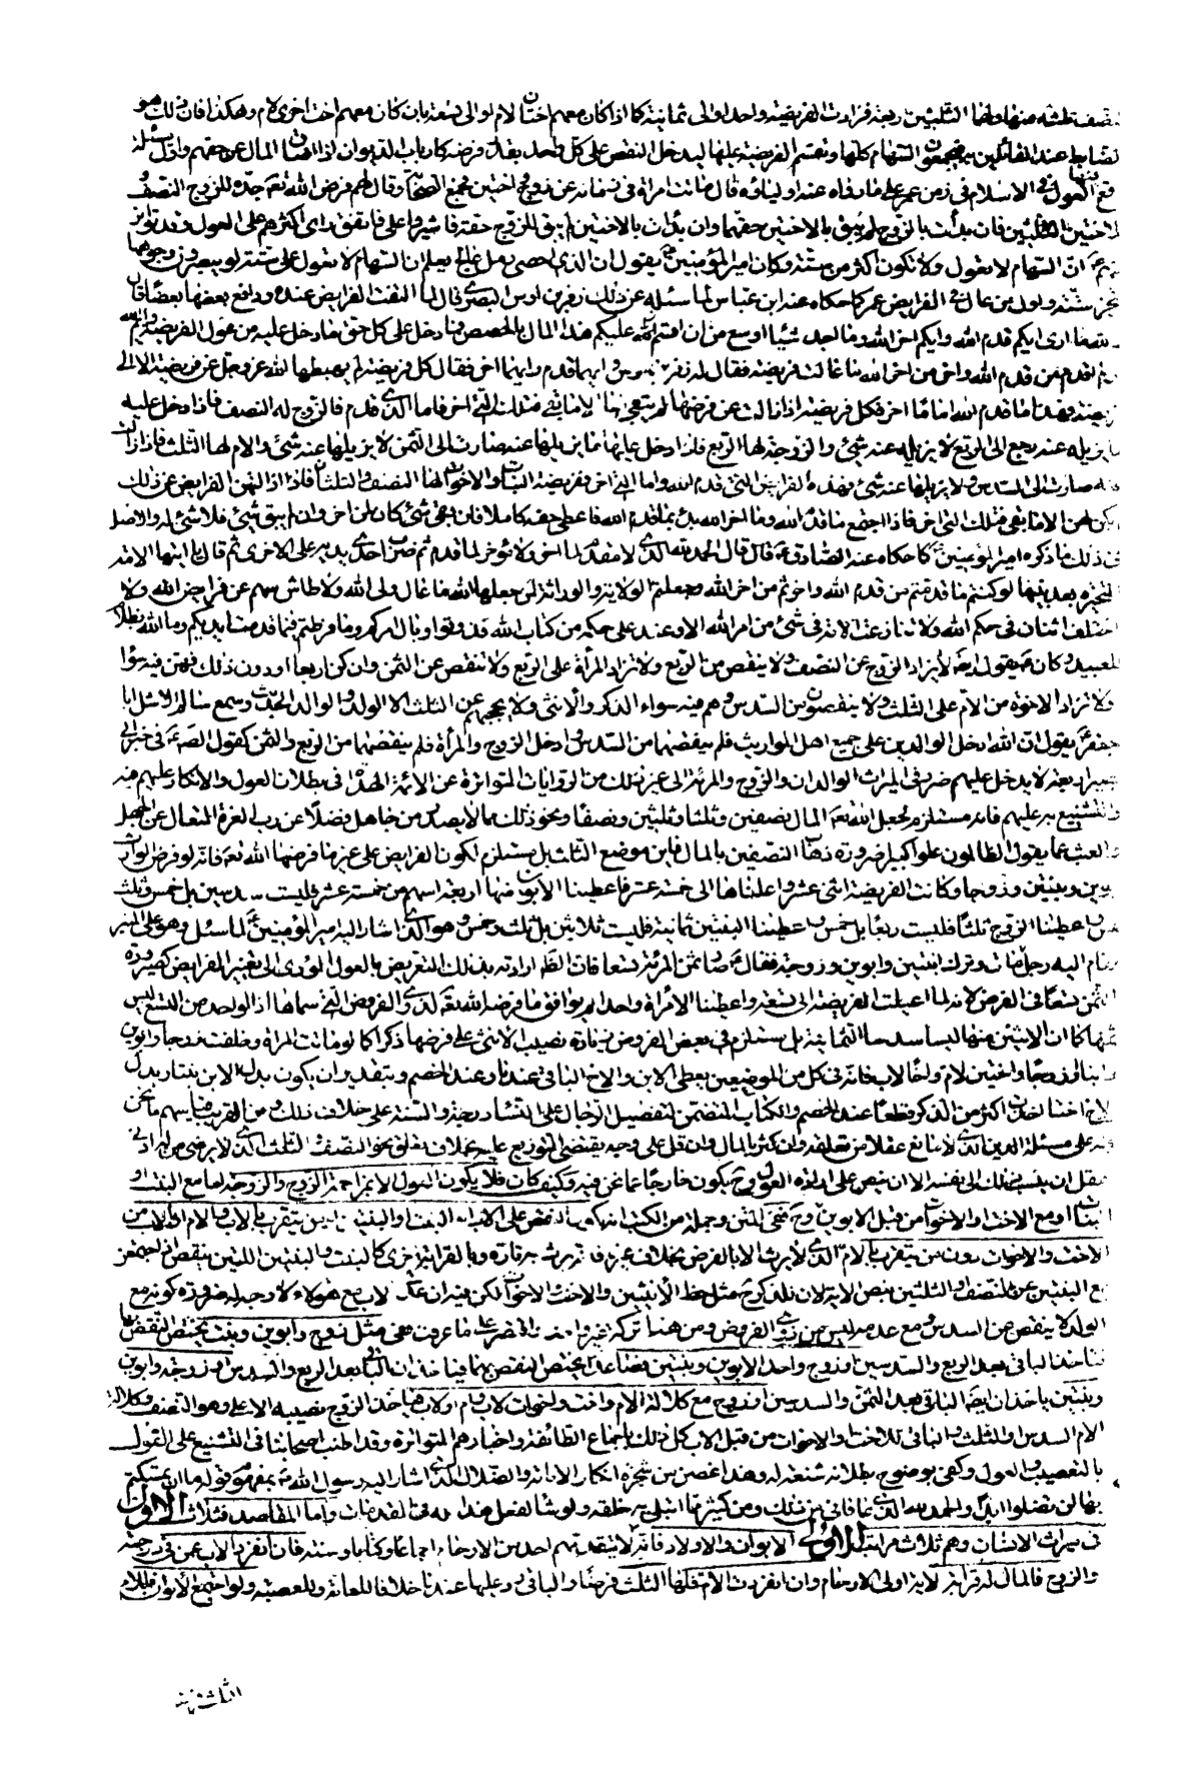 نصف ثلثه منها ولهما الثلثين اربعة فزادت الفريضة واحدا والى ثمانية كما اذا كان معهم اختان لام او الى تسعة بان كان معهم اخت اخرى لام وهكذا فان ذلك هو
لضابط عند القائلين به فيجمعون السهام كلها وتقسم الفريضة عليها ليدخل النقص على كل واحد بقدر فرضه كارباب الديون اذا ضاق المال عن حقهم واول مسئلة
وقع فيها العول في الاسلام في زمن عمر على ما رواه عنه اولياؤه قال ماتت امراة في زمانه عن زوج واختين فجمع الصحابة وقال لهم فرض الله تعالى جده للزوج النصف
لاختين الثلثين فان بدأت بالزوج لم يبق للاختين حقهما وان بدأت بالاختين لم يبق للزوج حقه فاشيروا على فاتفق راى اكثرهم على العول وقد تواتر
عنهم ان السهام لا تعول ولا تكون اكثر من ستة وكان امير المؤمنين يقول ان الذى احصى رمل عالج يعلم ان السهام لا تعول على ستة لو يبصرون وجوهها
لم تجز ستة واول من عال في الفرايض عمر كما حكاه عنه ابن عباس لما سئله عن ذلك زفر بن اوس البصرى قال لما التفت الفرايض عنده ودافع بعضها بعضا قال
والله ما ادرى ايكم قدم الله وايكم اخر الله وما اجد شيئا اوسع من ان اقسم عليكم هذا المال بالحصص فادخل على كل حق ما دخل عليه من عول الفريضة وايم الله
لو قدم من قدم الله واخر من اخر الله ما عالت فريضة فقال له زفر بن اوس ايهما قدم وايهما اخر فقال كل فريضة لم يهبطها الله عز وجل عن فريضة الا الى
فريضة فهذا ما قدم الله اما ما اخر فكل فريضة اذا زالت عن فرضها لم يبق لها الا ما بقى فتلك التى اخر فاما الذى قدم فالزوج له النصف فاذا دخل عليه
ما يزيله عنه رجع الى الربع لا يزيله عنه شئ والزوجة لها الربع فاذا دخل عليها ما يزيلها عنه صارت الى الثمن لا يزيلها عنه شئ والام لها الثلث فاذا زالت
عنه صارت الى السدس ولا يزيلها عنه شئ فهذه الفرايض التى قدم الله واما التى اخر ففريضة البنات والاخوات لها النصف والثلثان فاذا ازالتهن الفرايض عن ذلك
لم يكن لهن الا ما بقى فتلك التى اخر فاذا اجتمع ما قدم الله وما اخر الله بدئ بما قدم الله فاعطى حقه كاملا فان بقى شئ كان لمن اخر وان لم يبق شئ فلا شئ له والاصل
فى ذلك ما ذكره امير المؤمنين كما حكاه عنه الصادق قال قال الحمد لله الذى لا مقدم لما اخر ولا مؤخر لما قدم ثم ضرب احدى يديه على الاخرى ثم قال يا ايتها الامة
المتحيرة بعد نبيها لو كنتم قدمتم من قدم الله واخرتم من اخر الله وجعلتم الولاية والوراثة لمن جعلها الله ما عال ولى الله ولا طاش سهم عن فرايض الله ولا
اختلف اثنان فى حكم الله ولا تنازعت الامة فى شئ من امر الله الا وعند على حكمه من كتاب الله فذوقوا وبال امركم وما فرطتم فيما قدمت ايديكم وما الله بظلام
للعبيد وكان يقول ايضا لا يزاد الزوج عن النصف ولا ينقص من الربع ولا تزاد المرأة على الربع ولا تنقص عن الثمن وان كن اربعا او دون ذلك فهن فيه سواء
ولا تزاد الاخوة من الام على الثلث ولا ينقصون من السدس وهم فيه سواء الذكر والانثى ولا يحجبهم عن الثلث الا الولد والوالد الحديث وسمع سالم الاشل ابا
جعفر يقول ان الله ادخل الوالدين على جميع اهل المواريث فلم ينقصهما من السدس وادخل الزوج والمرأة فلم ينقصهما من الربع والثمن كقول الصادق فى خبر ابى
بصير اربعة لا يدخل عليهم ضرر فى الميراث الوالدان والزوج والمرأة الى غير ذلك من الروايات المتواترة عن الائمة الهداة فى بطلان العول والانكار عليهم فيه
والتشنيع به عليهم فانه مستلزم لجعل الله تعالى المال نصفين وثلثا وثلثين ونصفا ونحو ذلك مما لا يصدر من جاهل فضلا عن رب العزة المتعال عن الجهل
والعبث عما يقول الظالمون علوا كبيرا ضرورة ذهاب النصفين بالمال فاين موضع الثلث بل يستلزم لكون الفرايض على غير ما فرضها الله تعالى فانه لو فرض الوارث
ابوين وبنتين وزوجا وكانت الفريضة اثنى عشر واعلناها الى خمسة عشر فاعطينا الابوين منها اربعة اسهم من خمسة عشر فليست سدسين بل خمس وثلث
خمس واعطينا الزوج ثلثا فليست ربعا بل خمس واعطينا البنتين ثمانية فليست ثلاثين بل ثلث وخمس وهو الذى اشار اليه امير المؤمنين لما سئل وهو على المنبر
فقام اليه رجل مات وترك ابنتين وابوين وزوجة فقال صار ثمن المرئة تسعا فان الظاهر ارادته بذلك التعريض بالعول المؤدى الى تغيير الفرايض كصيرورة
الثمن تسعا فى الفرض لانه لما اعيلت الفريضة الى تسعة واعطينا الامرأة واحدا لم يوافق ما فرضه الله تعالى لها والفروض التى سماها اذ الواحد من التسع ليس
ثمنها كما ان الاثنين منها ليسا سدسا الثمانية بل يستلزم فى بعض الفروض زيادة نصيب الانثى على فرضها ذكرا كما لو ماتت المراة وخلفت زوجا وابوين
وابنا او زوجا واختين لام واخا لاب فانه فى كل من الموضعين يعطى الابن والاخ الباقى عندنا وعند الخصم وبتقدير ان يكون بدل الابن بنتا وبدل
الاخ اختا تاخذان اكثر من الذكر قطعا عند الخصم والكتاب المتضمن لتفضيل الرجال على النساء درجة والسنة على خلاف ذلك ومن الغريب قياسهم ما نحن
فيه على مسئلة الدين الذى لا مانع عقلا من تعلقه وان كثر بالمال وان قل على وجه يقتضى التوزيع عليه بخلاف تعلق نحو النصف والثلث الذى لا يرضى من له ادنى
عقل ان ينسب ذلك الى نفسه الا ان ينص على ارادة العول وح يكون خارجا عما نحن فيه وكيف كان فلا يكون العول الا بمزاحمة الزوج والزوجة اما مع البنت او
البنات او مع الاخت او الاخوات من قبل الابوين وح ففى المتن وجملة من الكتب انه يكون النقص على الاب او البنت او البنتين او من يتقرب بالاب والام او بالاب من
الاخت والاخوات دون من يتقرب بالام الذى لا يرث الا بالفرض بخلاف غيره فانه يرث به تارة وبالقرابة اخرى كالبنت والبنتين اللتين ينقصن اذا اجتمعن
مع البنين عن النصف او الثلثين بنص الاية لان للذكر ح مثل حظ الانثيين والاخت الاخوات لكن فيه ان عد الاب مع هؤلاء لا وجه له ضرورة كونه مع
الولد لا ينقص عن السدس ومع عدمه ليس من ذوى الفروض ومن هنا تركه غير واحد واقتصر على ما عرفت فهى مثل زوج وابوين وبنت يختص النقص بها
فتاخذ الباقى بعد الربع والسدسين او زوج واحد الابوين وبنتين فصاعدا يختص النقص بهما فياخذان الباقى بعد الربع والسدس او زوجة وابوين
وبنتين ياخذان ايضا الباقى بعد الثمن والسدسين او زوج مع كلالة الام واخت واخوات لاب وام او لاب فياخذ الزوج نصيبه الاعلى وهو النصف وكلالة
الام السدس او الثلث والباقى للاخت او الاخوات من قبل الاب كل ذلك باجماع الطائفة واخبارهم المتواترة وقد اطنب اصحابنا فى التشنيع على القول
بالتعصيب والعول وكفى بوضوح بطلانه شنعة له وهذا غصن من شجرة انكار الامامة والضلال الذى اشار اليه رسول الله بمفهوم قوله ما ان تمسكتم
بهما لن تضلوا ابدا والحمد لله الذى عافانى من ذلك ومن كثير مما ابتلى به خلقه ولو شاء لفعل هذا كله فى المقدمات واما المقاصد فثلاث الاول
فى ميراث الانساب وهم ثلاث مراتب الاولى الابوان والاولاد فانه لا يتقدمهم احد من الارحام اجماعا وكتابا وسنة فان انفرد الاب عمن فى درجته
والزوج فالمال له قرابة لاية اولى الارحام وان انفردت الام فلها الثلث فرضا والباقى رد عليها عندنا خلافا للعامة وللعصبة ولو اجتمع الابوان فللام
الثلث